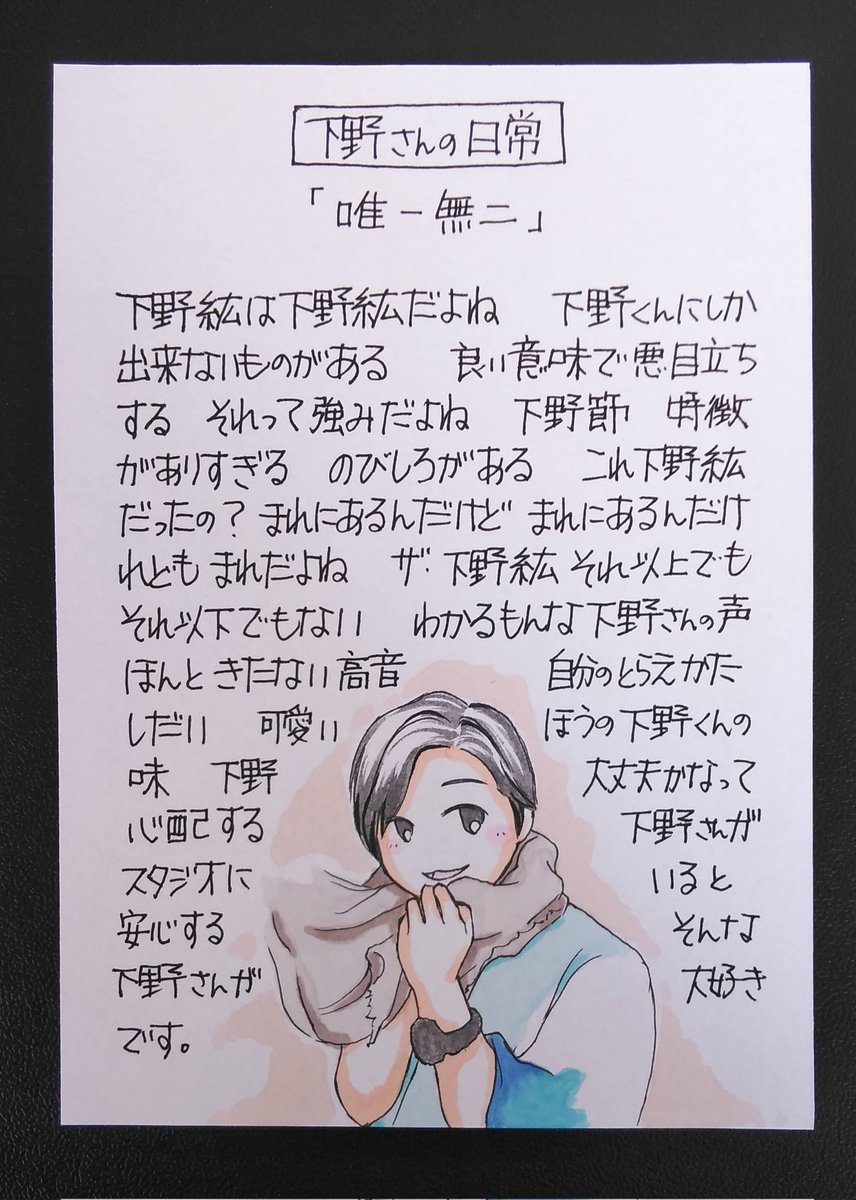 下野さんの日常
「唯一無二」
下野紘は下野紘だよね　下野くんにしか
出来ないものがある　良い意味で悪目立ち
する　それって強みだよね　下野節　特徴
がありすぎる　のびしろがある　これ下野紘
だったの？まれにあるんだけど まれにあるんだけ
れども まれだよね　ザ・下野紘 それ以上でも
それ以下でもない　わかるもんな下野さんの声
ほんときたない高音　自分のとらえかた
しだい　可愛い　ほうの下野くんの
味　下野　大丈夫かなって
心配する　下野さんが
スタジオに　いると
安心する　そんな
下野さんが　大好き
です。